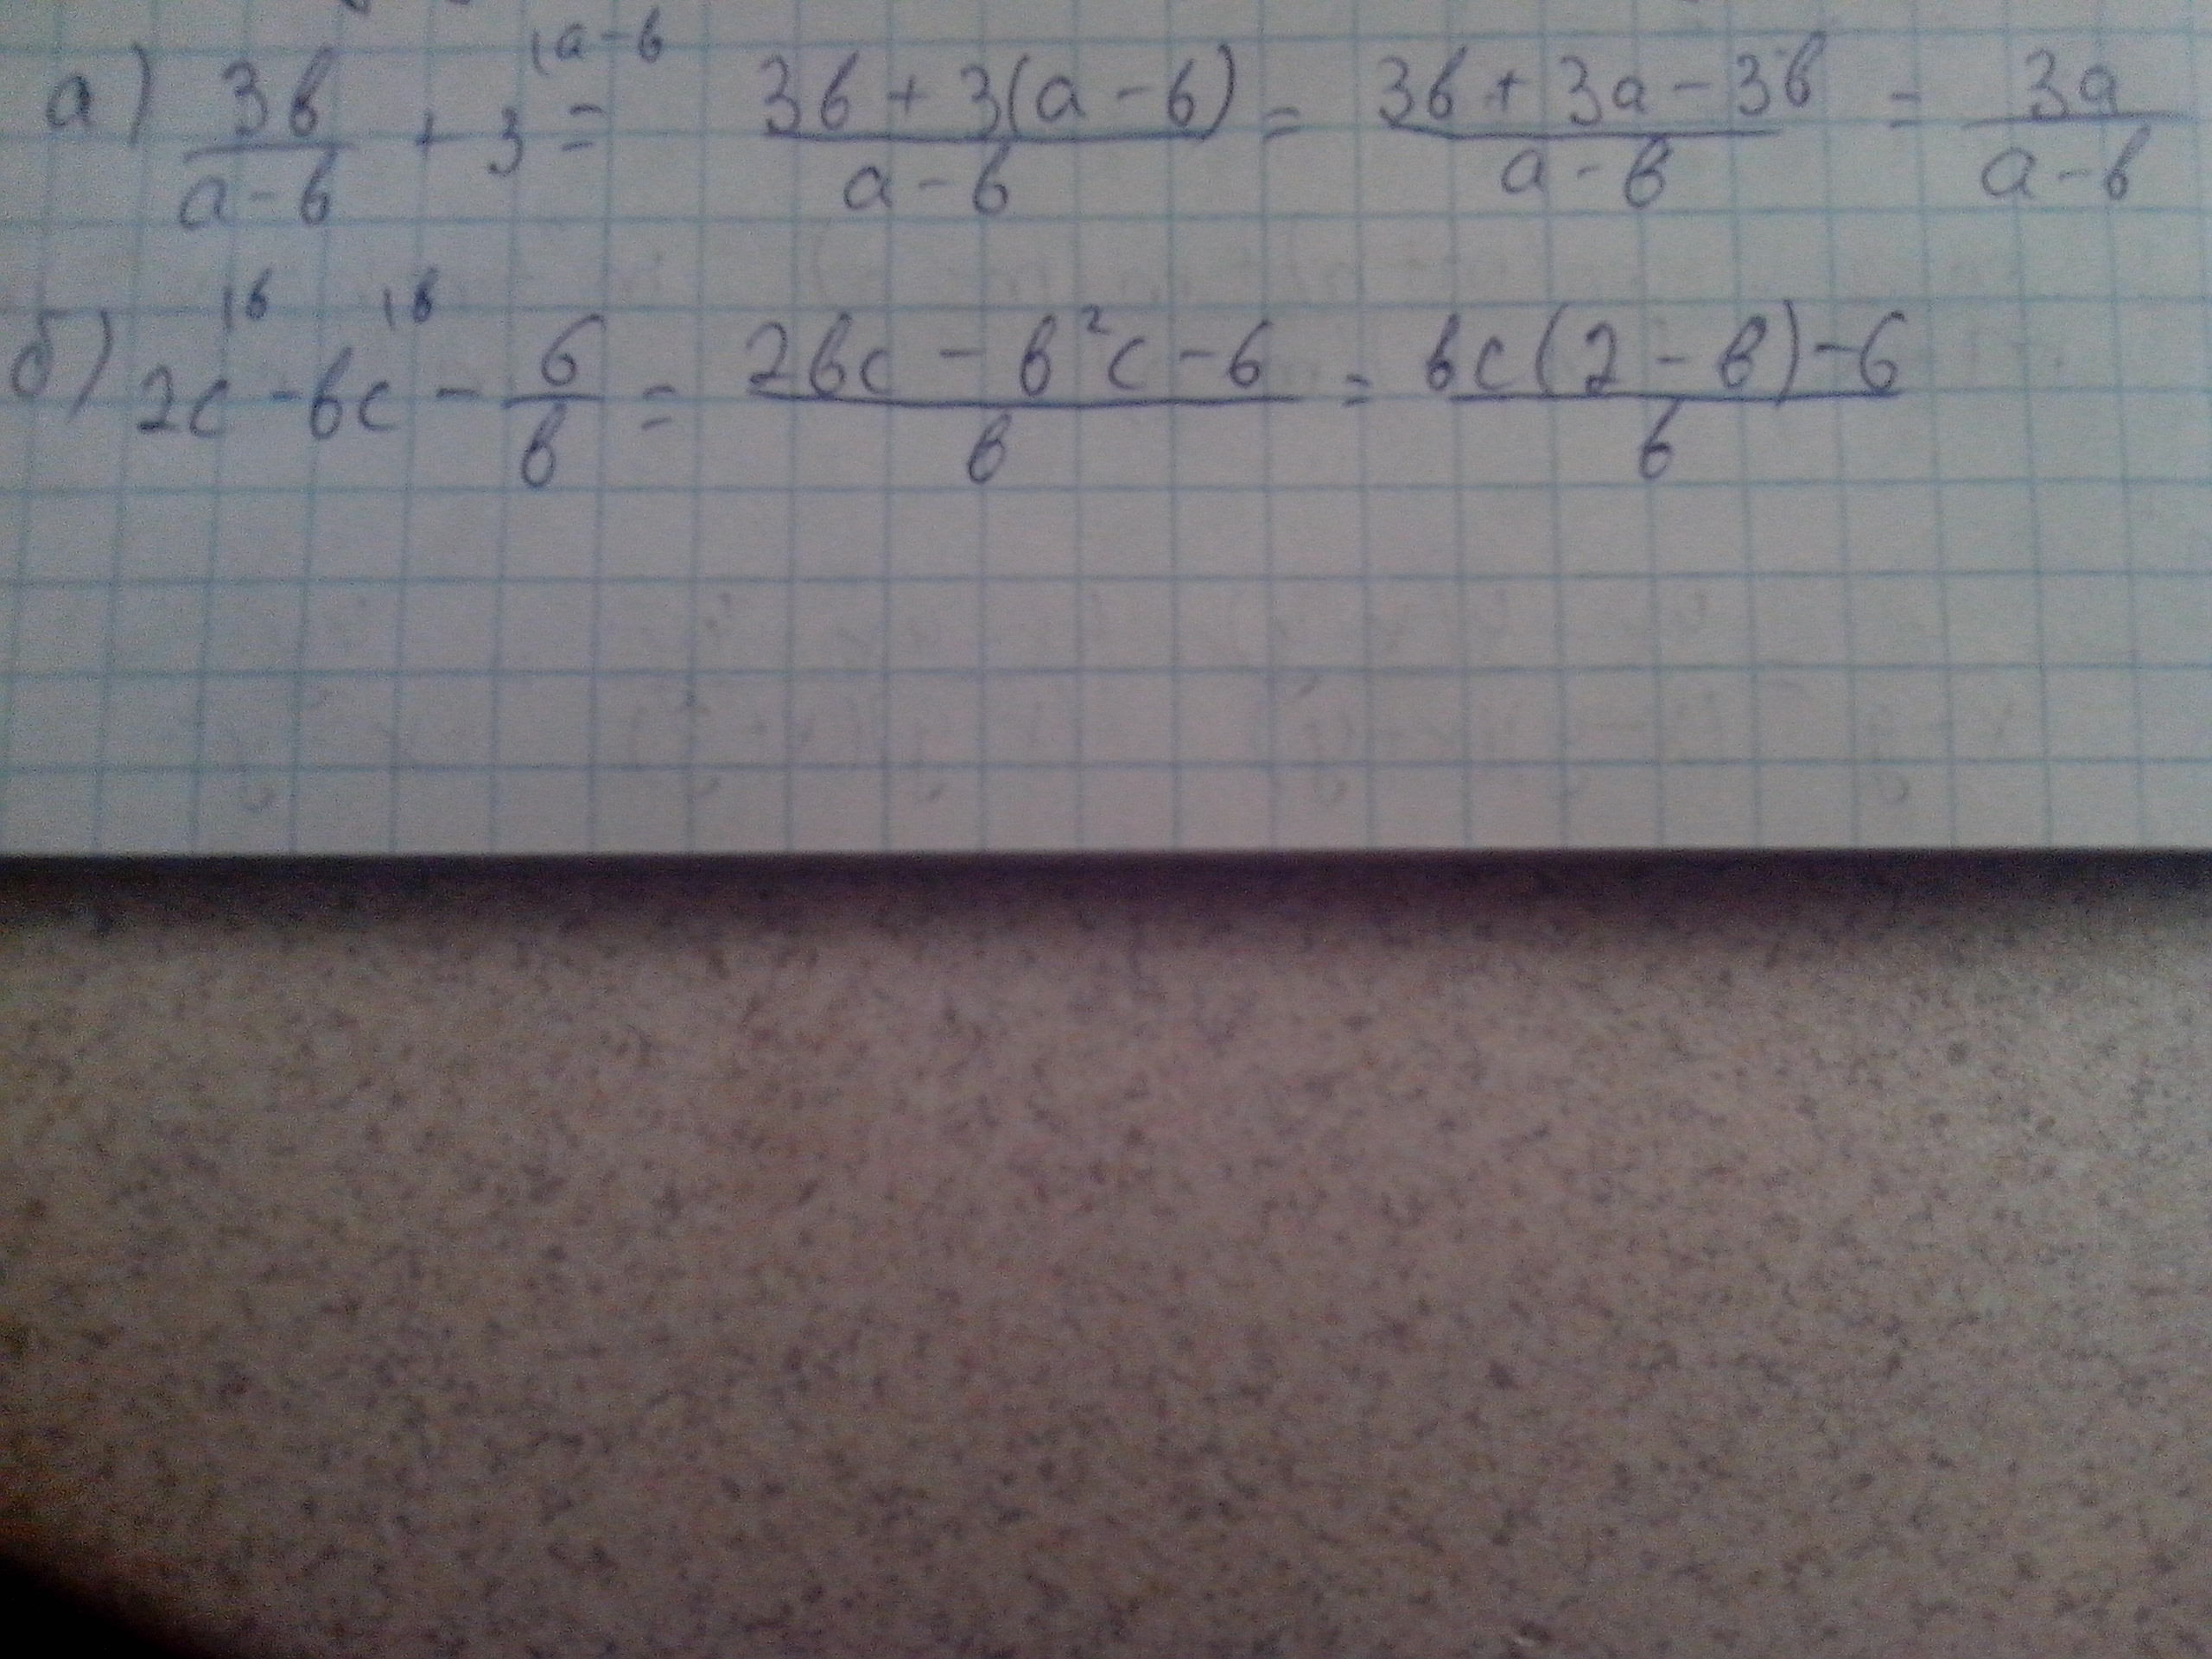 а) 3b/(a-b) + 3^{|a-b} = (3b + 3(a-b))/(a-b) = (3b + 3a - 3b)/(a-b) = 3a/(a-b)
б) 2c^{|b} - bc^{|b} - 6/b = (2bc - b²c - 6)/b = (bc(2-b) - 6)/b